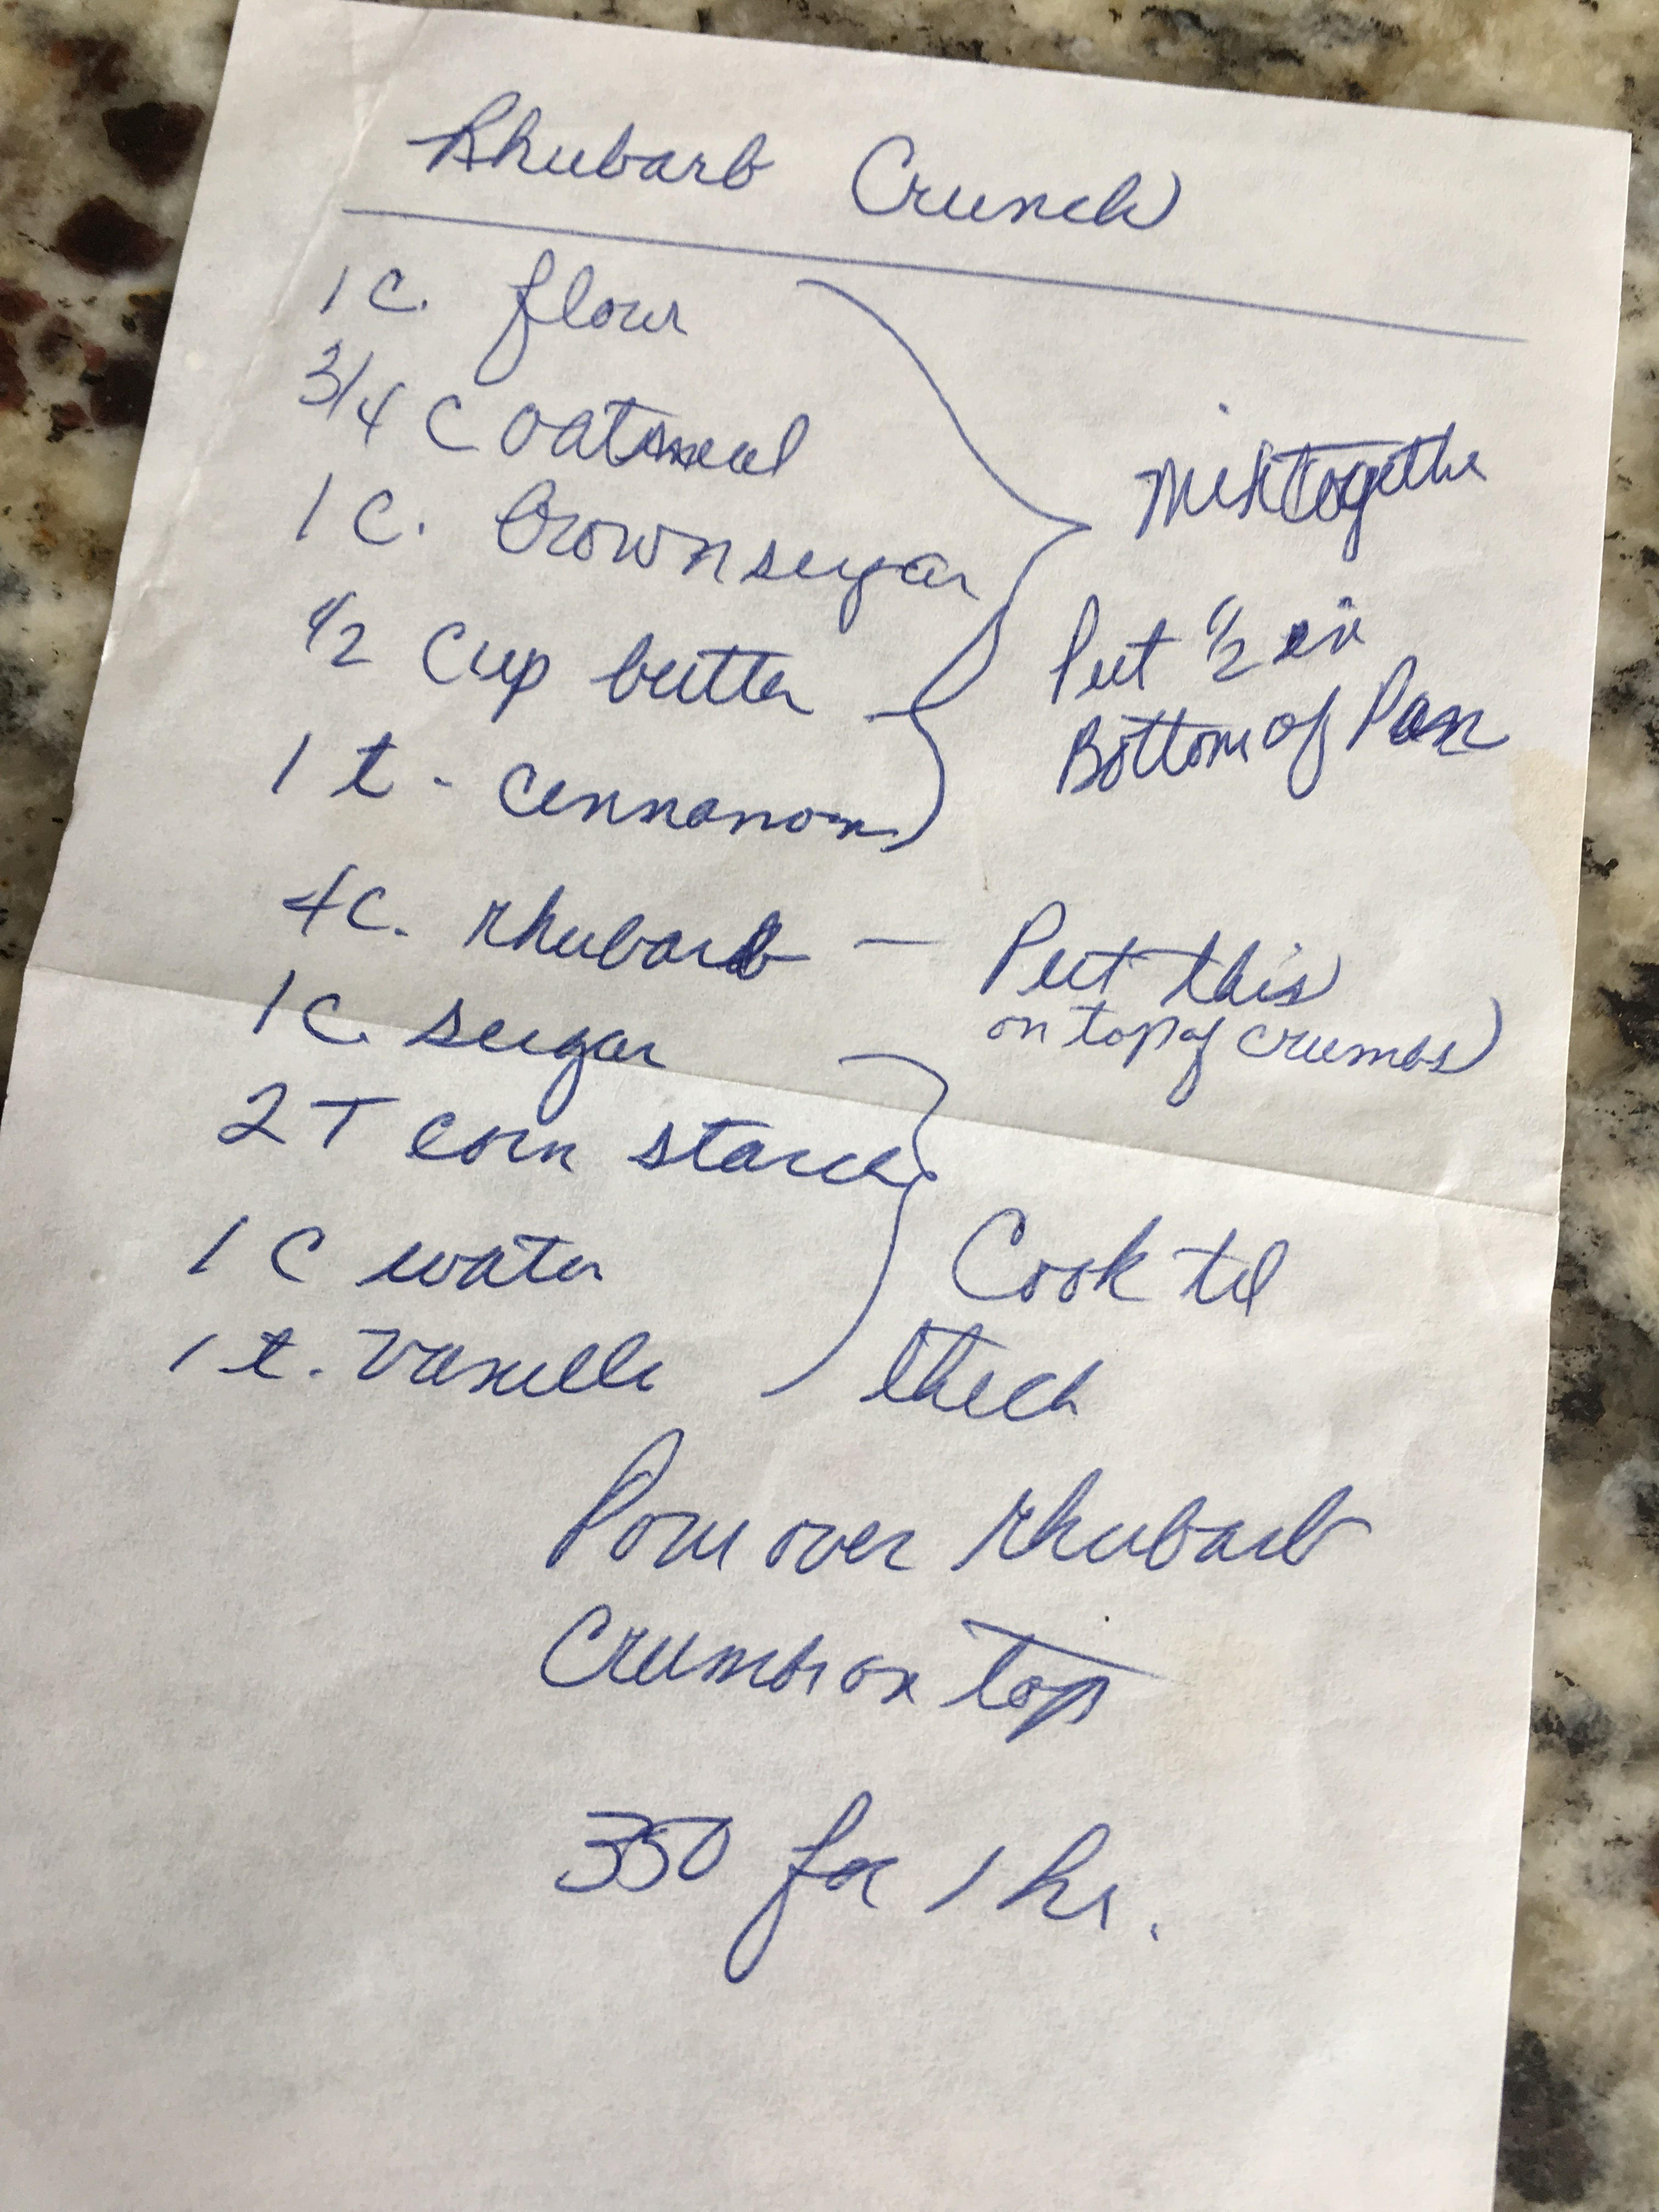 Rhubarb Crunch
1 c. flour
3/4 c oatmeal
1 c. brown sugar
Mix together
1/2 cup butter
Put 1/2 in
Bottom of Pan
1 t - cinnamon
4 c. rhubarb — Put this
on top of crumbs
1 c. sugar
2 T corn starch
1 c water
Cook til
thick
1 t. vanilla
Pour over rhubarb
Crumbs on top
350 for 1 hr.